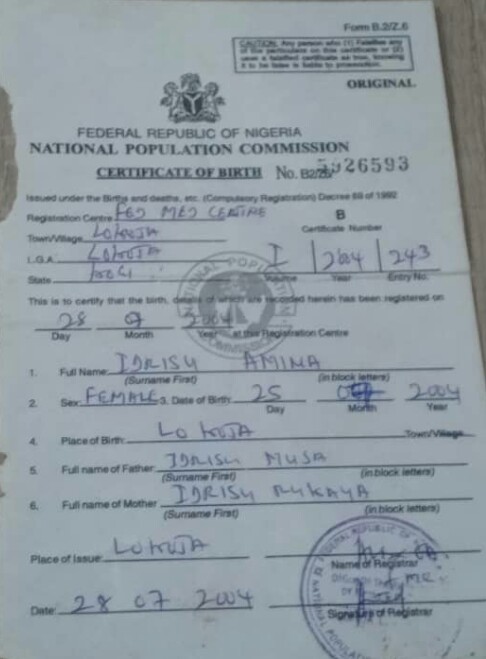 Form B.2/Z.6
CAUTION: Any person who (1) Falsifies any
of the particulars on this certificate or (2)
uses a falsified certificate as true, knowing
it to be false is liable to prosecution.
ORIGINAL
FEDERAL REPUBLIC OF NIGERIA
NATIONAL POPULATION COMMISSION
CERTIFICATE OF BIRTH No. B2/Z6 5926593
Issued under the Births and deaths, etc. (Compulsory Registration) Decree 69 of 1992
Registration Centre FED MED CENTRE B
Certificate Number
Town/Village LOKOJA
L.G.A. LOKOJA I 2004 243
State KOGI Volume Year Entry No.
This is to certify that the birth, details of which are recorded herein has been registered on
28 07 2004
Day Month Year at this Registration Centre
1. Full Name: IDRISU AMINA
(Surname First) (in block letters)
2. Sex: FEMALE 3. Date of Birth: 25 2004
Day Month Year
4. Place of Birth: LOKOJA Town/Village
5. Full name of Father: IDRISU MUSA
(Surname First) (in block letters)
6. Full name of Mother IDRISU RUKAYA
(Surname First) (in block letters)
Place of Issue: LOKOJA
Name of Registrar
Date: 28 07 2004
Signature of Registrar